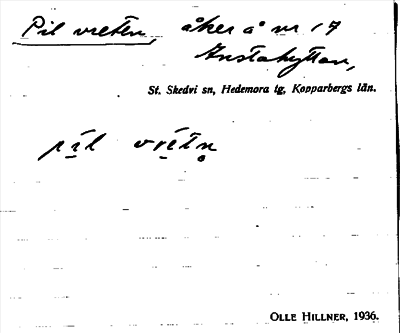 Pil vreten, åker å nr 17
Anstahyttan,
St. Skedvi sn, Hedemora tg, Kopparbergs län.
pil vretn̥
OLLE HILLNER, 1936.